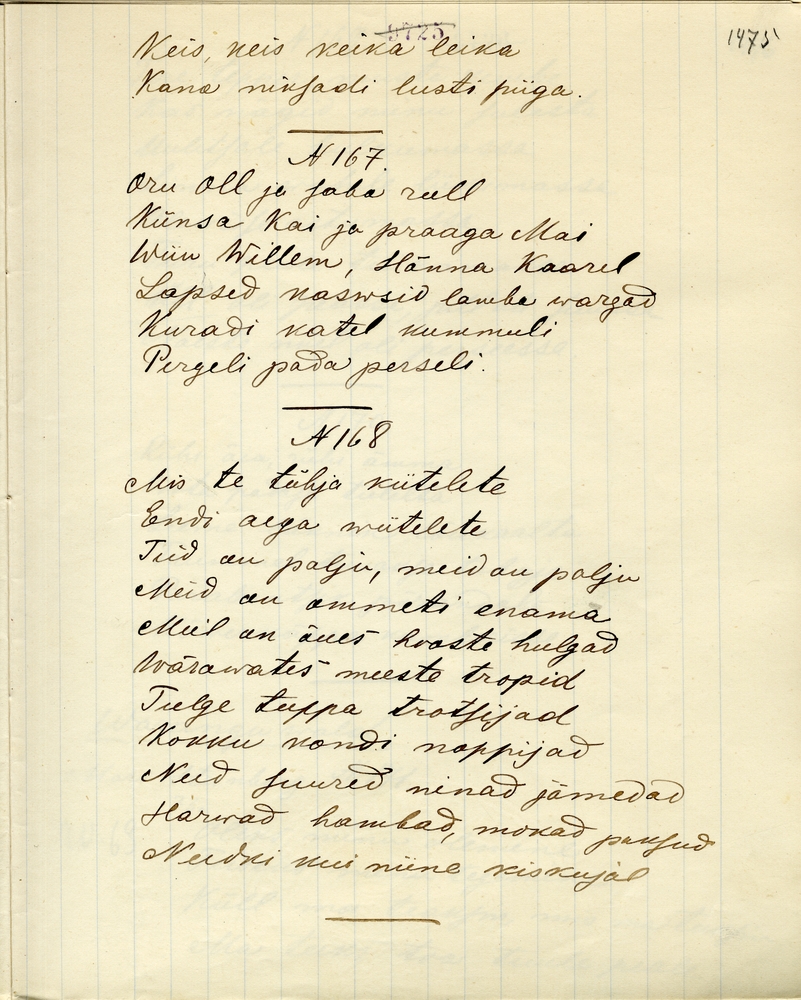 9725
1475
Keis, keis keika leika
Kana niksadi lusti piiga.
N 167.
Oru Oll ja saba rull
Künsa Kai ja praaga Mai
Wiiu Willem, Hänna Kaarel
Lapsed kaswsid lamba wargad
Kuradi katel kummuli
Pergeli pada perseli.
N 168
Mis te tühja kiitelete
Endi aega wiitelete
Teid on palju, meid on palju
Meid on ommeti enama
Meil on õues hooste hulgad
Wärawates meeste tropid
Tulge tuppa trotsijad
Kokku kondi noppijad
Neid suured ninad jämedad
Harwad hambad, mokad paksud
Neidki kui niine kiskujal